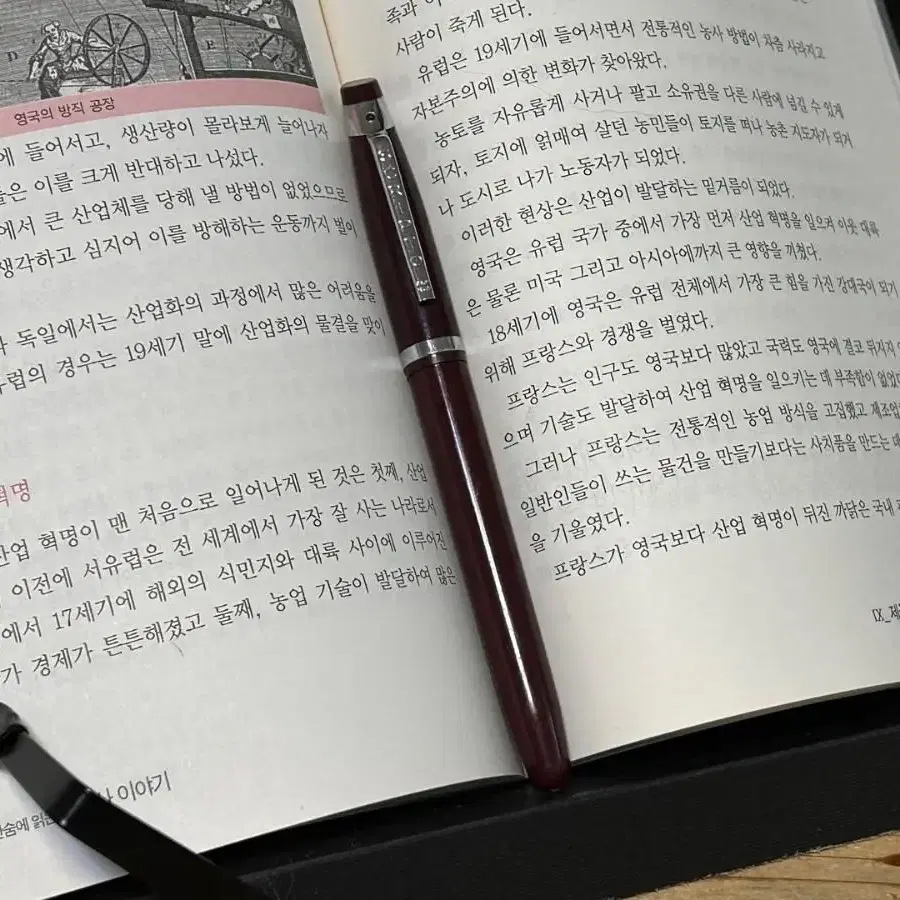 D
영국의 방직 공장
에 들어서고, 생산량이 몰라보게 늘어나자
들은 이를 크게 반대하고 나섰다.
에서 큰 산업체를 당해 낼 방법이 없었으므로
생각하고 심지어 이를 방해하는 운동까지 벌이
독일에서는 산업화의 과정에서 많은 어려움을
유럽의 경우는 19세기 말에 산업화의 물결을 맞이
혁명
산업 혁명이 맨 처음으로 일어나게 된 것은 첫째, 산업
이전에 서유럽은 전 세계에서 가장 잘 사는 나라로서
에서 17세기에 해외의 식민지와 대륙 사이에 이루어진
가 경제가 튼튼해졌고 둘째, 농업 기술이 발달하여 많은
이야기
사람이 죽게 된다.
유럽은 19세기에 들어서면서 전통적인 농사 방법이 차츰 사라지고
자본주의에 의한 변화가 찾아왔다.
농토를 자유롭게 사거나 팔고 소유권을 다른 사람에 넘길 수 있게
되자, 토지에 얽매여 살던 농민들이 토지를 떠나 농촌 지도자가 되거
나 도시로 나가 노동자가 되었다.
이러한 현상은 산업이 발달하는 밑거름이 되었다.
영국은 유럽 국가 중에서 가장 먼저 산업 혁명을 일으켜 이웃 대륙
은 물론 미국 그리고 아시아에까지 큰 영향을 끼쳤다.
18세기에 영국은 유럽 전체에서 가장 큰 힘을 가진 강대국이 되기
위해 프랑스와 경쟁을 벌였다.
프랑스는 인구도 영국보다 많았고 국력도 영국에 결코 뒤지지
으며 기술도 발달하여 산업 혁명을 일으키는 데 부족함이 없었다
그러나 프랑스는 전통적인 농업 방식을 고집했고 제조업
일반인들이 쓰는 물건을 만들기보다는 사치품을 만드는 데
을 기울였다.
프랑스가 영국보다 산업 혁명이 뒤진 까닭은 국내
IX_제